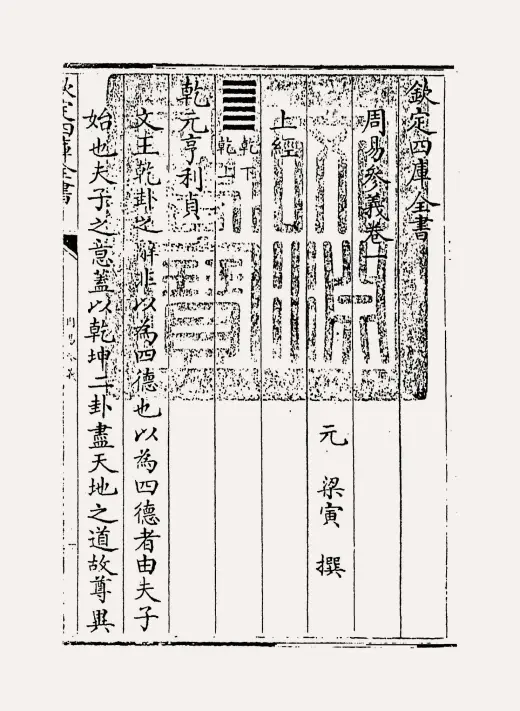 欽定四庫全書
周易參義卷一
元 梁寅 撰
上經
乾下
乾上
乾元亨利貞
文王乾卦之辭非以為四德也以為四德者由夫子
始也夫子之意蓋以乾坤二卦盡天地之道故尊異
欽定四庫全書